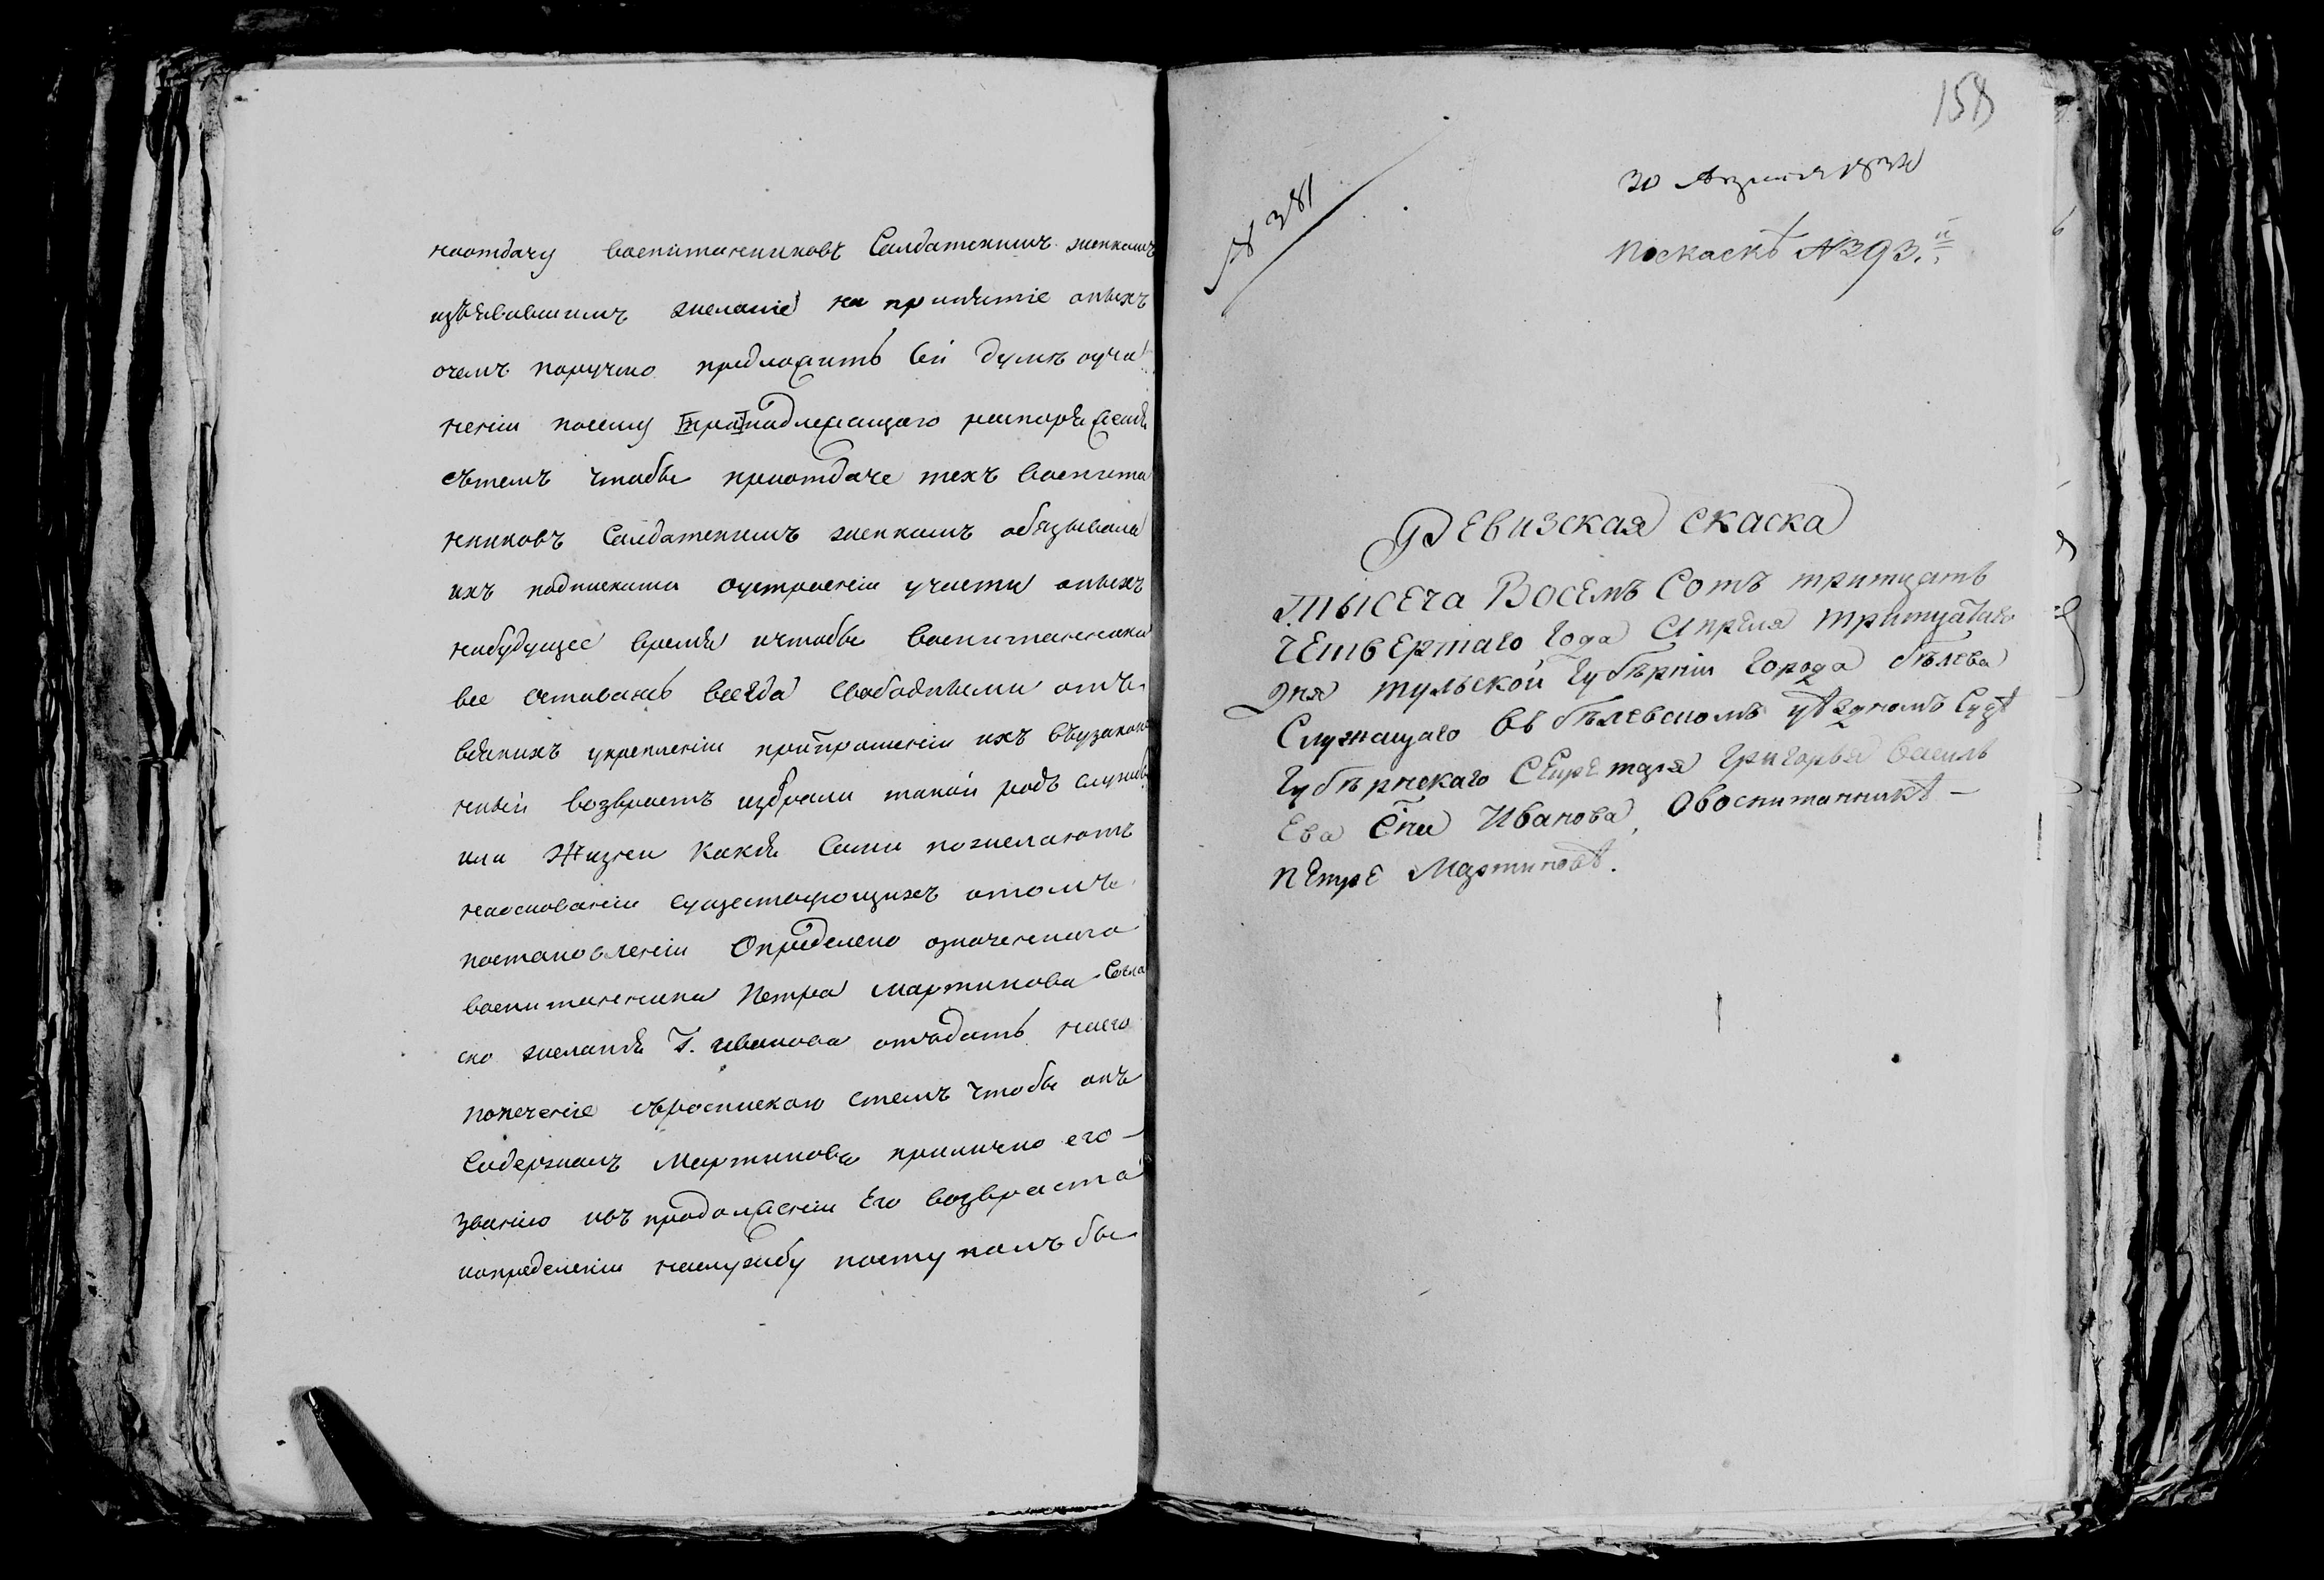 наотдачу воспитанниковъ Салдатскимъ женкамъ
изъявившимъ желаніе на принятіе оныхъ
очемъ поручено предложить Сей думѣ оучи
неніи посему принадлежащаго распоряженія
сътемъ чтобы приотдаче техъ воспита
нниковъ Салдатскимъ женкамъ обязывала
ихъ подписками оустроеніи участи оныхъ
набудущее время ичтобы воспитанники
все оставались всегда свободными отъ
всякихъ укрепленіи припришествіи ихъ въузаконе
нный возврастъ избрали такой родъ службы
или Жизни какой Сами пожелаютъ
наоснованіи существующихъ отомъ
постановленіи Определено означеннаго
воспитанника Петра Мартинова Согла
сно желанія Г. Иванова отъдать наего
попеченіе съроспискою стемъ чтобы онъ
Содержалъ Мартинова прилично его
званію ивъ продолженіи Его возвраста
иопределеніи наслужбу поступалъ бы
158
№ 381
30 Апреля 1834
Поскаскѣ №393.й
Ревизская скаска
Тысеча Восемъ Сотъ тритцать
четвертаго года Апреля тритцатаго
дня тульской губѣрніи города бѣлева
Служащаго въ бѣлевскомъ уѣздномъ Судѣ
губѣрнскаго Секретаря григорья василь
ева Сна Иванова, Овоспитанникѣ
петре Мартиновѣ.